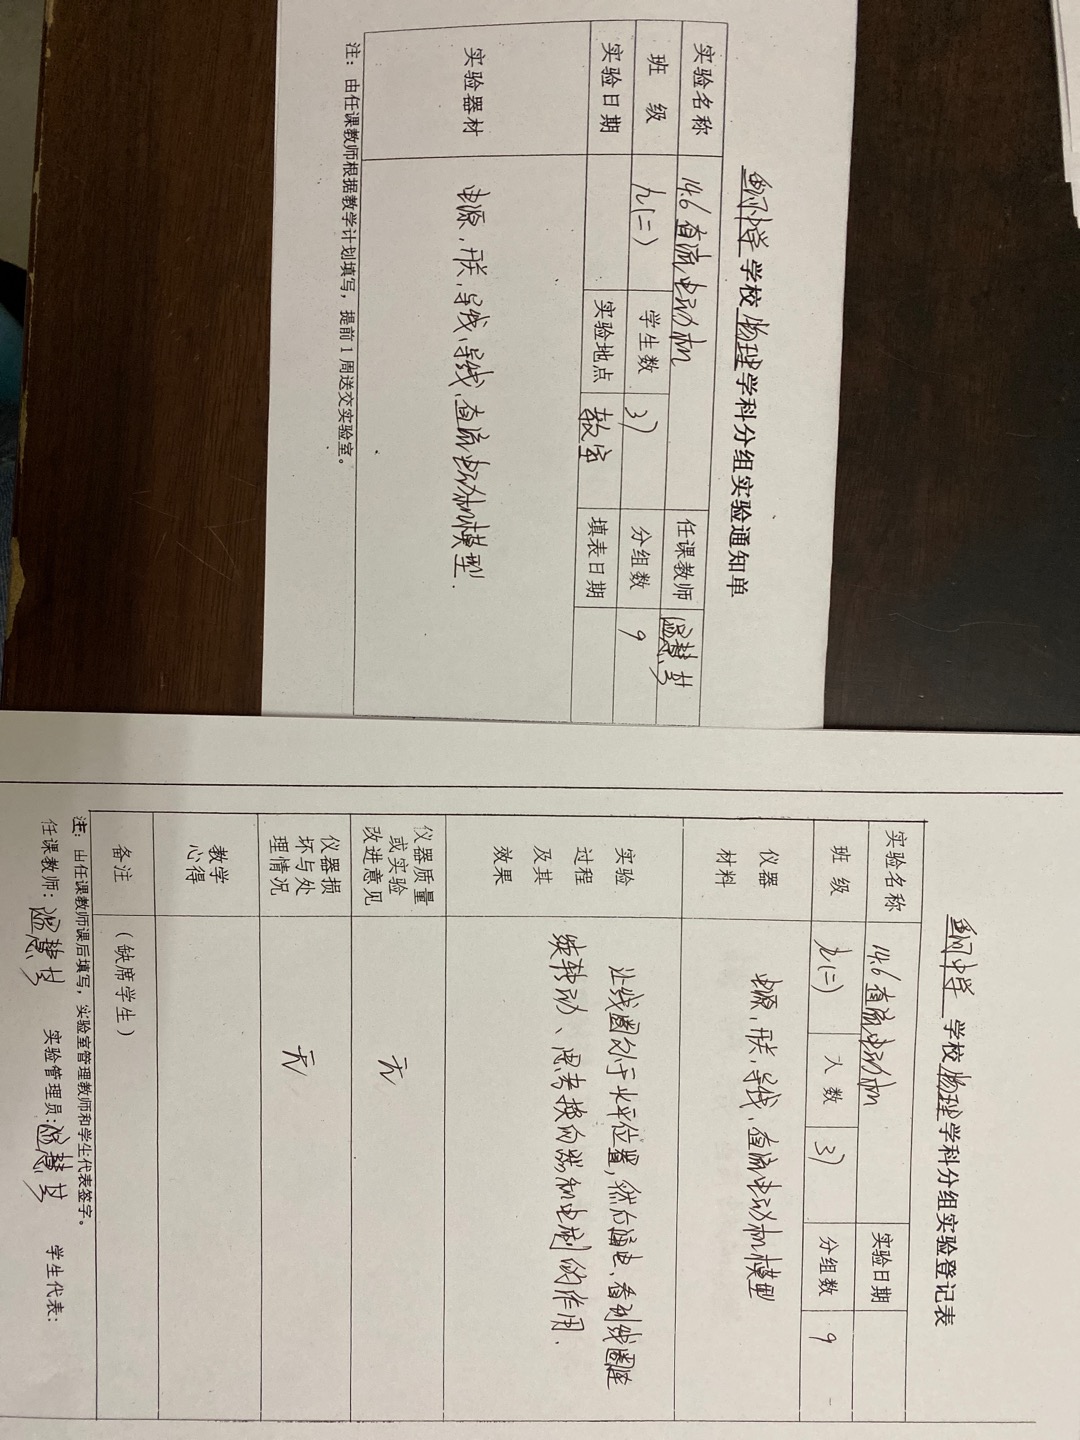 学校物理学科分组实验通知单
实验名称 14.6直流电动机 任课教师
班 级 九(二) 学生数 37 分组数 9
实验日期 实验地点 教室 填表日期
实验器材 电源,开关,导线,导线,直流电动机模型.
注:由任课教师根据教学计划填写,提前1周送交实验室。
学校物理学科分组实验登记表
实验名称 14.6直流电动机 实验日期
班 级 九(二) 人数 37 分组数 9
仪器
材料
电源,开关,导线,直流电动机模型
实验
过程
及其
效果
让线圈处于水平位置,然后通电,看到线圈连
续转动、思考换向器和电刷的作用.
仪器质量
或实验
改进意见
无
仪器损
坏与处
理情况
无
教学
心得
备注 (缺席学生)
注:由任课教师课后填写,实验室管理教师和学生代表签字。
任课教师: 实验管理员: 学生代表: